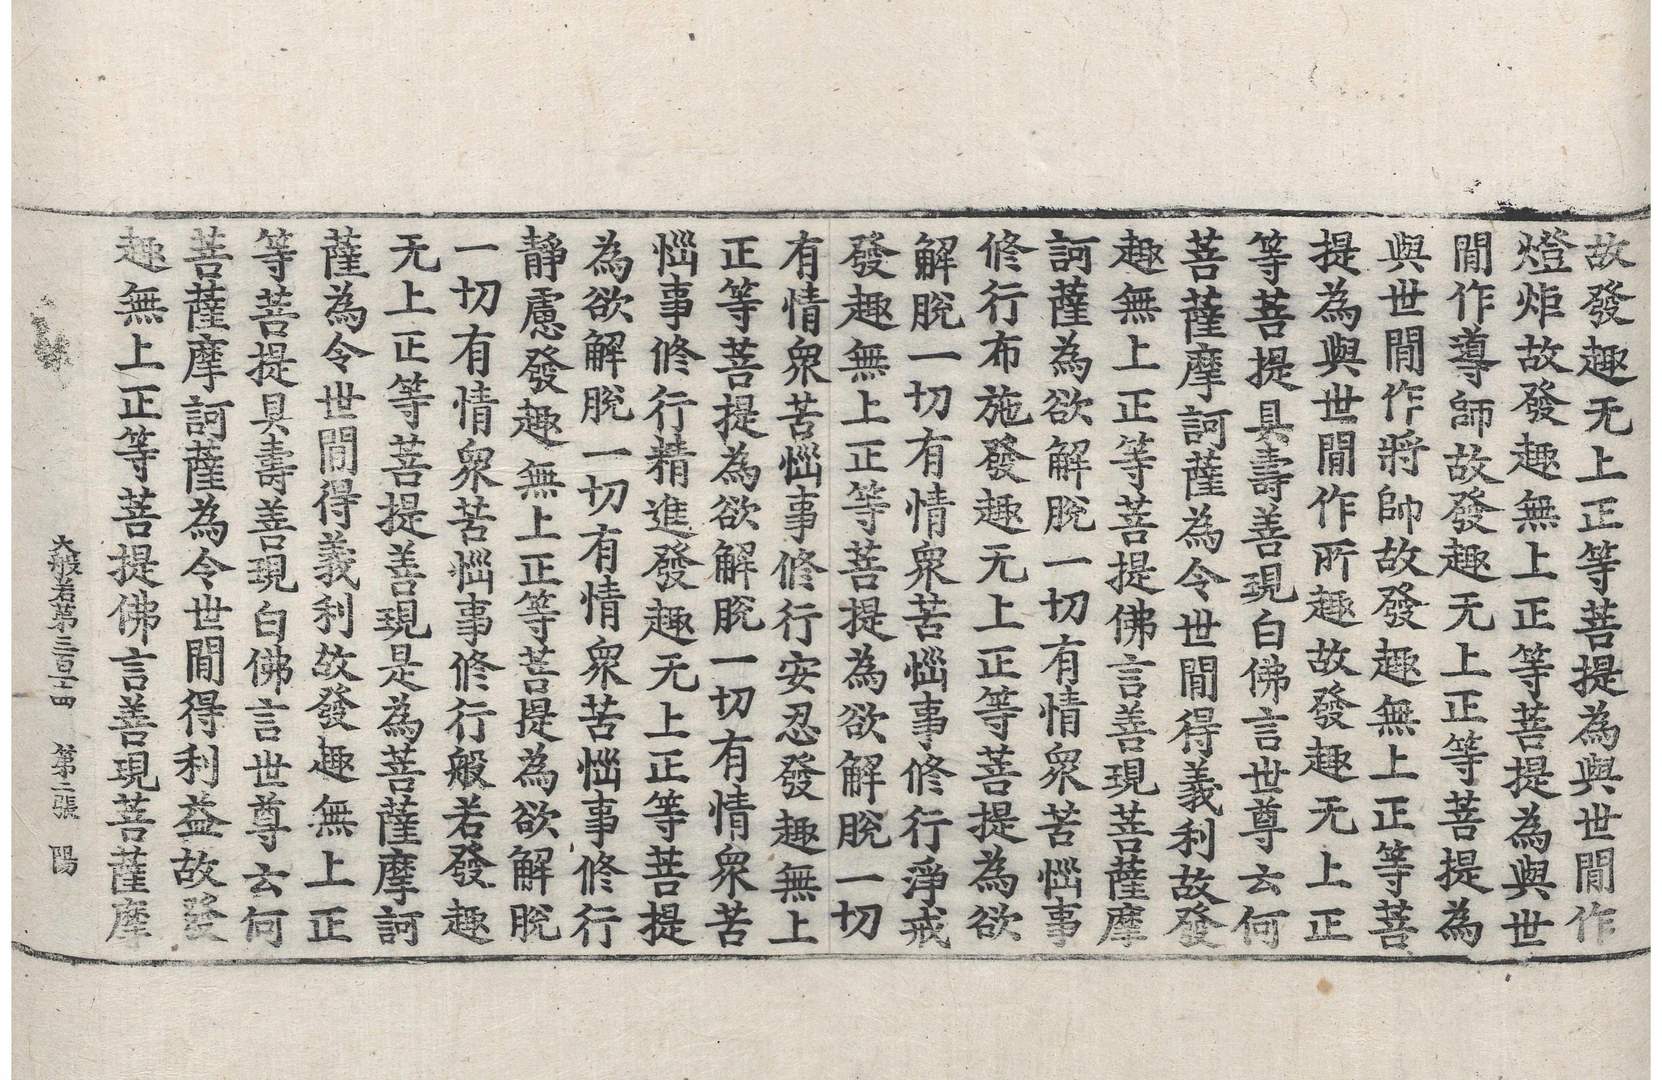 故發趣无上正等菩提為與世間作
燈炬故發趣無上正等菩提為與世
間作導師故發趣无上正等菩提為
與世間作將帥故發趣無上正等菩
提為與世間作所趣故發趣无上正
等菩提具壽善現白佛言世尊云何
菩薩摩訶薩為令世間得義利故發
趣無上正等菩提佛言善現菩薩摩
訶薩為欲解脫一切有情衆苦惱事
修行布施發趣无上正等菩提為欲
解脫一切有情衆苦惱事修行淨戒
發趣無上正等菩提為欲解脫一切
有情衆苦惱事修行安忍發趣無上
正等菩提為欲解脫一切有情衆苦
惱事修行精進發趣无上正等菩提
為欲解脫一切有情衆苦惱事修行
靜慮發趣無上正等菩提為欲解脫
一切有情衆苦惱事修行般若發趣
无上正等菩提善現是為菩薩摩訶
薩為令世間得義利故發趣無上正
等菩提具壽善現白佛言世尊云何
菩薩摩訶薩為令世間得利益故發
趣無上正等菩提佛言善現菩薩摩
大般若第三百十四 第二張 陽